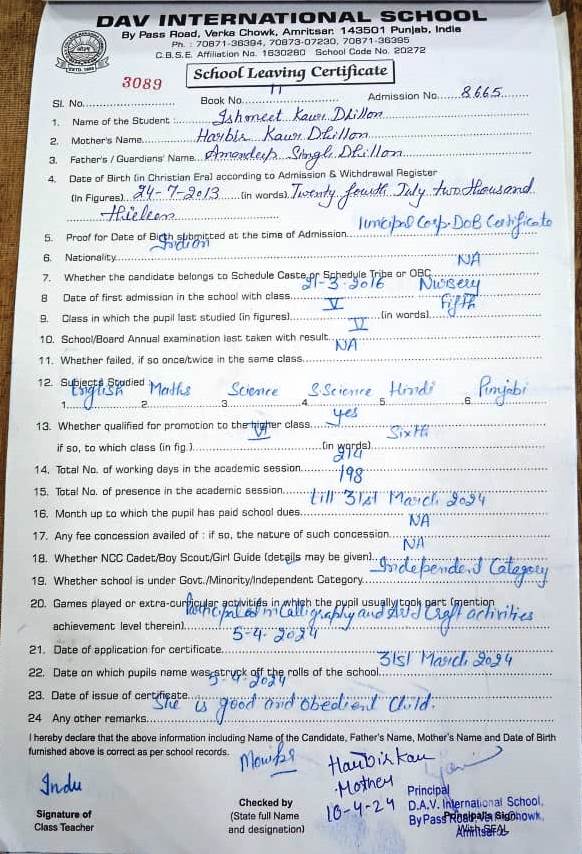 DAV INTERNATIONAL SCHOOL
By Pass Road, Verka Chowk, Amritsar. 143501 Punjab, India
Ph. : 70871-36394, 70873-07230, 70871-36395
C.B.S.E. Affiliation No. 1630280 School Code No. 20272
School Leaving Certificate
Sl. No. 3089 Book No. 11 Admission No. 8665
1. Name of the Student : Ishmeet Kaur Dhillon
2. Mother's Name Harbir Kaur Dhillon
3. Father's / Guardians' Name Amandeep Singh Dhillon
4. Date of Birth (in Christian Era) according to Admission & Withdrawal Register
(in Figures) 24-7-2013 (in words) Twenty fourth July two thousand
thirteen
5. Proof for Date of Birth submitted at the time of Admission Muncipal Corp. DOB Certificate
6. Nationality Indian
7. Whether the candidate belongs to Schedule Caste or Schedule Tribe or OBC NA
8 Date of first admission in the school with class 21-3-2016 Nursery
9. Class in which the pupil last studied (in figures) V (in words) Fifth
10. School/Board Annual examination last taken with result V
11. Whether failed, if so once/twice in the same class NA
12. Subjects Studied
1. English 2. Maths 3. Science 4. S.Science 5. Hindi 6. Punjabi
13. Whether qualified for promotion to the higher class yes
if so, to which class (in fig.) VI (in words) Sixth
14. Total No. of working days in the academic session 214
15. Total No. of presence in the academic session 198
16. Month up to which the pupil has paid school dues till 31st March 2024
17. Any fee concession availed of : if so, the nature of such concession NA
18. Whether NCC Cadet/Boy Scout/Girl Guide (details may be given) NA
19. Whether school is under Govt./Minority/Independent Category Independent Category
20. Games played or extra-curricular activities in which the pupil usually took part (mention
achievement level therein) Participated in Calligraphy and Craft activities
21. Date of application for certificate 5-4-2024
22. Date on which pupils name was struck off the rolls of the school 31st March 2024
23. Date of issue of certificate 5-4-2024
24 Any other remarks She is good and obedient Child.
I hereby declare that the above information including Name of the Candidate, Father's Name, Mother's Name and Date of Birth
furnished above is correct as per school records.
Indu
Signature of
Class Teacher
Checked by
(State full Name
and designation)
Harbir Kaur
Mother
10-4-24
Principal
D.A.V. International School,
By Pass Road, Verka Chowk,
Amritsar
Principal's Sign
With SEAL